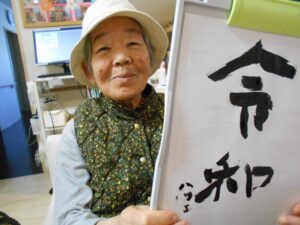 令和
ハツエ